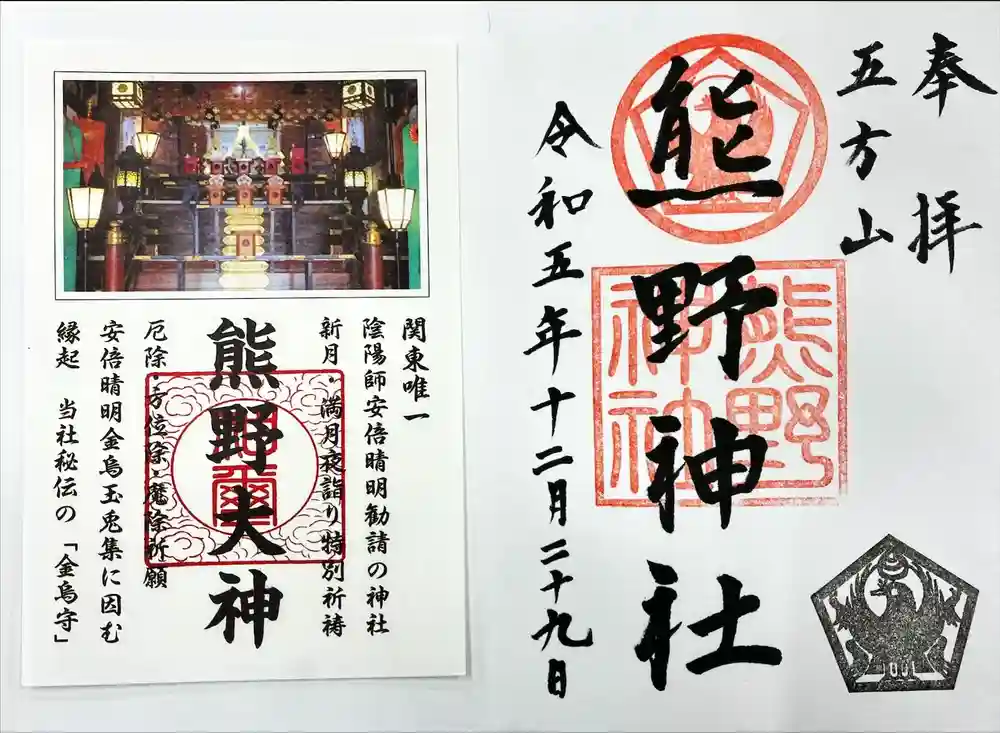 奉拝
五方山
熊野神社
熊野神社
令和五年十二月二十九日
関東唯一
陰陽師安倍晴明勧請の神社
新月・満月夜詣り特別祈祷
熊野大神
厄除・方位除・魔除祈願
安倍晴明金烏玉兎集に因む
縁起 当社秘伝の「金烏守」